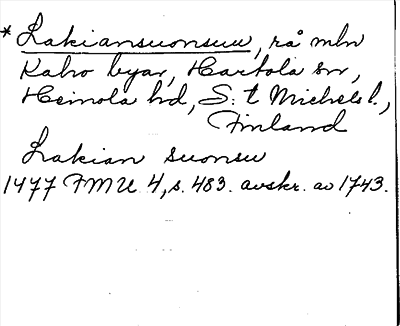 * Lakiansuonsuu, rå mln
Kalho byar, Hartola sn,
Heinola hd, S:t Michels l.,
Finland
Lakian suonsu
1477 FMU 4, s. 483. avskr. av 1743.